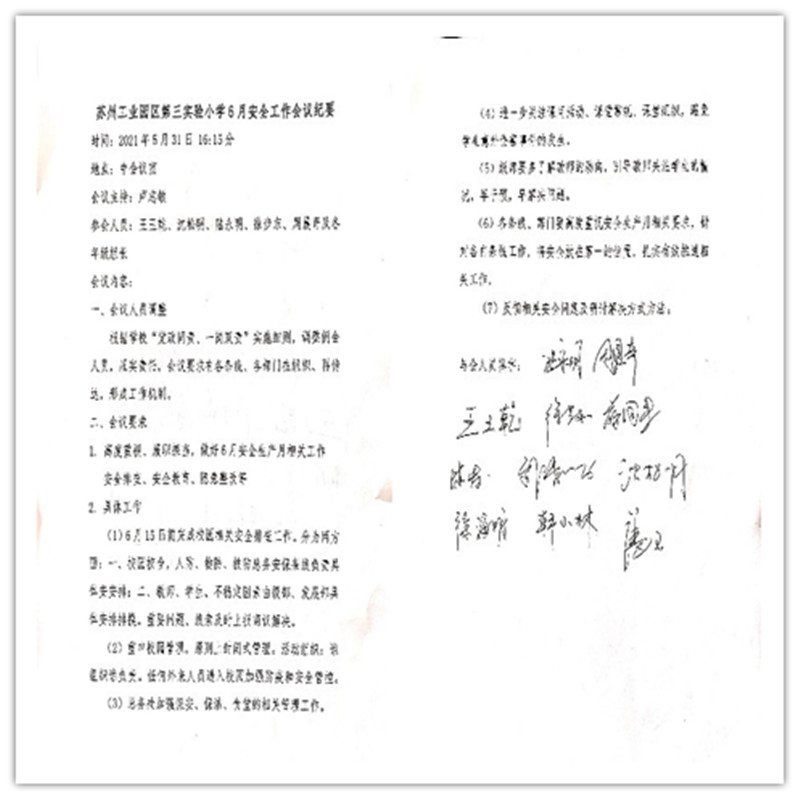 苏州工业园区第三实验小学6月安全工作会议纪要
时间：2021年5月31日 16:15分
地点：中会议室
会议主持：卢志敏
参会人员：王玉乾、沈松明、陆永明、徐步东、周晨卉及各
年级组长
会议内容：
一、会议人员调整
根据学校“党政同责、一岗双责”实施细则，调整例会
人员，落实责任。会议要求有各条线、各部门在组织、再传
达，形成工作机制。
二、会议要求
1. 高度重视、履职担当，做好6月安全生产月相关工作
安全排查、安全教育、隐患整改等
2. 具体工作
（1）6月15日前完成校区相关安全排查工作。分为两方
面：一、校区校舍，人身、物防、技防总务安保条线负责具
体安全安排；二、教师、学生、不稳定因素由级部、发展部具
体安排排摸。重要问题、线索及时上报商议解决。
（2）重申校园管理，原则上封闭式管理。活动组织：谁
组织谁负责。任何外来人员进入校区加强防疫和安全管控。
（3）总务处加强保安、保洁、食堂的相关管理工作。
（4）进一步关注课间活动、课堂常规、课整组织，避免
学生意外伤害事件的发生。
（5）级部要多了解教师的动向，引导教师关注学生的情
况，早干预，早解决问题。
（6）各条线、部门要高度重视安全生产月相关要求，针
对各自条线工作，将安全放在第一的位置，扎实有效推进相
关工作。
（7）反馈相关安全问题及研讨解决方式方法。
与会人员签字：
王玉乾
韩小林